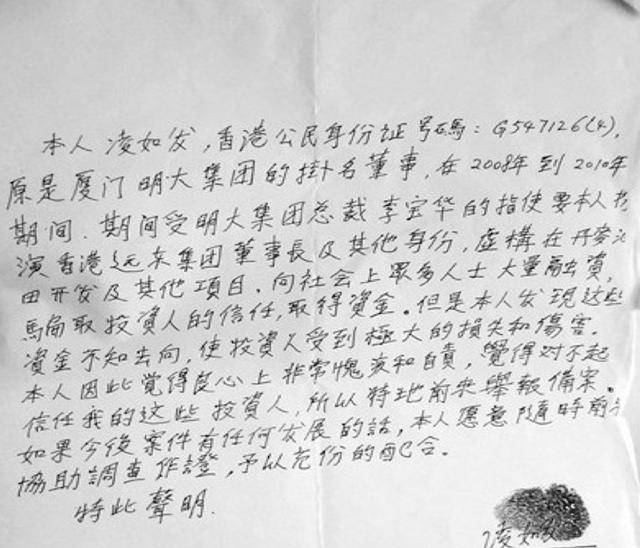 本人 凌如发，香港公民身份证号碼：G547126(4),
原是厦门 明大集团的掛名董事，在 2008年 到 2010年
期间．期间受明大集团总裁 李宝华的指使 要本人扮
演香港远东集团董事長及其他身份，虚構在 丹麥
田开发及其他項目，向社会上眾多人士 大量融資，
騙取投資人的信任，取得資金。但是本人发现这些
資金不知去向，使投資人受到極大的損失和傷害。
本人因此觉得良心上非常愧疚和自責，覺得对不起
信任我的这些投資人，所以特地前来舉報備案。
如果今後案件有任何发展的話，本人愿意隨時前来
協助調查作證，予以充份的配合。
特此聲明．
凌如发